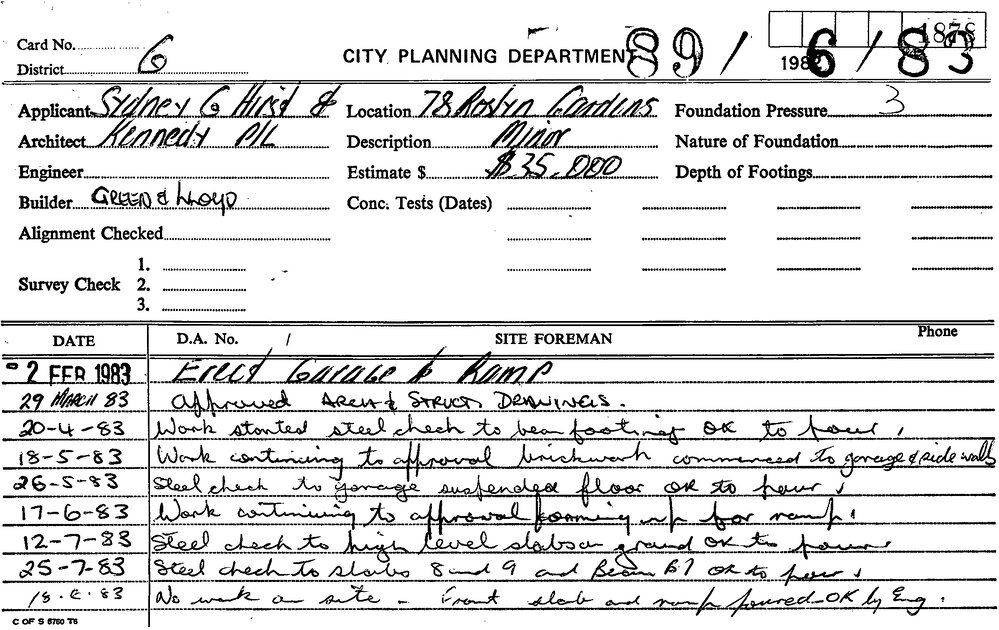 1878
Card No. 6 CITY PLANNING DEPARTMENT 89/ 6/83
District 1982
Applicant Sydney G Hirst & Location 78 Roslyn Gardens Foundation Pressure 3
Architect Kennedy P/L Description Minor Nature of Foundation
Engineer Estimate $ $35,000 Depth of Footings
Builder GREEN & LLOYD Conc. Tests (Dates)
Alignment Checked
1.
Survey Check 2.
3.
DATE D.A. No. / SITE FOREMAN Phone
2 FEB 1983 Erect Garage & Ramp
29 MARCH 83 Approved ARCH & STRUCT DRAWINGS.
20-4-83 Work started steel check to beam footings OK to pour.
18-5-83 Work continuing to approval brickwork commenced to garage & side walls
26-5-83 Steel check to garage suspended floor OK to pour.
17-6-83 Work continuing to approval forming up for ramp.
12-7-83 Steel check to high level slab on ground OK to pour
25-7-83 Steel check to slabs 8 and 9 and Beam B7 OK to pour.
18.8.83 No work on site - Front slab and ramp poured - OK by Eng.
C OF S 6760 T6